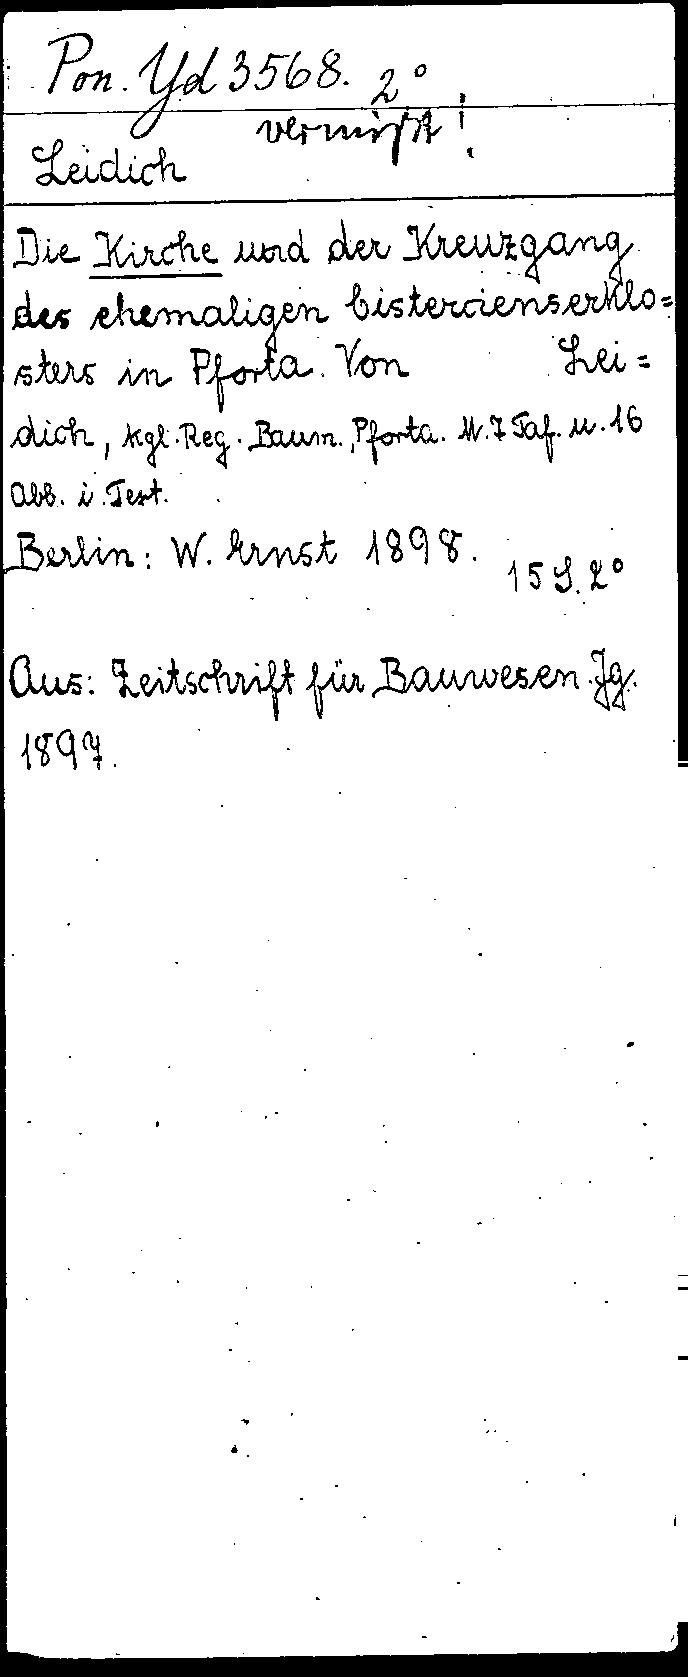 Pon. Yd 3568. 2°
vermißt!
Leidich
Die Kirche und der Kreuzgang
des ehemaligen Cistercienserklo=
sters in Pforta. Von Lei=
dich, kgl. Reg. Baum., Pforta. M. 7 Taf. u. 16
Abb. i. Text.
Berlin: W. Ernst 1898.
15 S. 2°
Aus: Zeitschrift für Bauwesen. Jg.
1897.